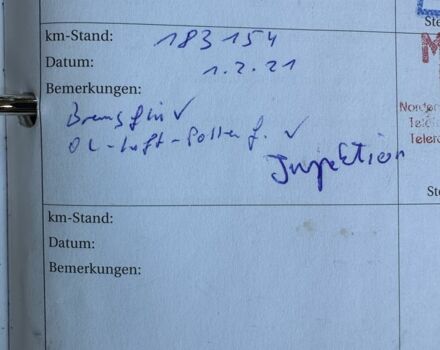 km-Stand: 183154
Datum: 1.2.21
Bemerkungen:
Bremsflü ✓
Öl-Luft-Pollenf. ✓
Inspektion
km-Stand:
Datum:
Bemerkungen:
Ste
M
Norder
Telef
Telef
Ste